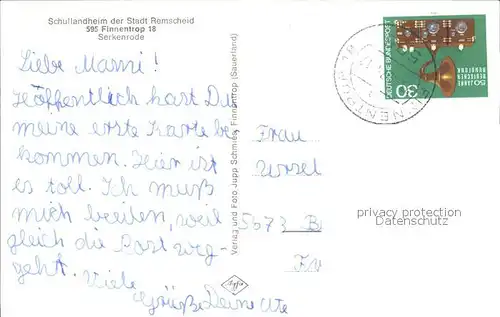 Schullandheim der Stadt Remscheid
595 Finnentrop 18
Serkenrode
Liebe Mammi!
Hoöffentlich hart Du
meine erste Karte be
kommen. Hier ist
es toll. Ich muß
mich beeilen, weil
gleich die Post weg-
geht. Viele
Grüße Deine Ute
Verlag und Foto Jupp Schmies, Finnentrop (Sauerland)
Frau
Ursel
5673 B
privacy protection
Datenschutz
DEUTSCHE BUNDESPOST
50 JAHRE
DEUTSCHER
RUNDFUNK
30